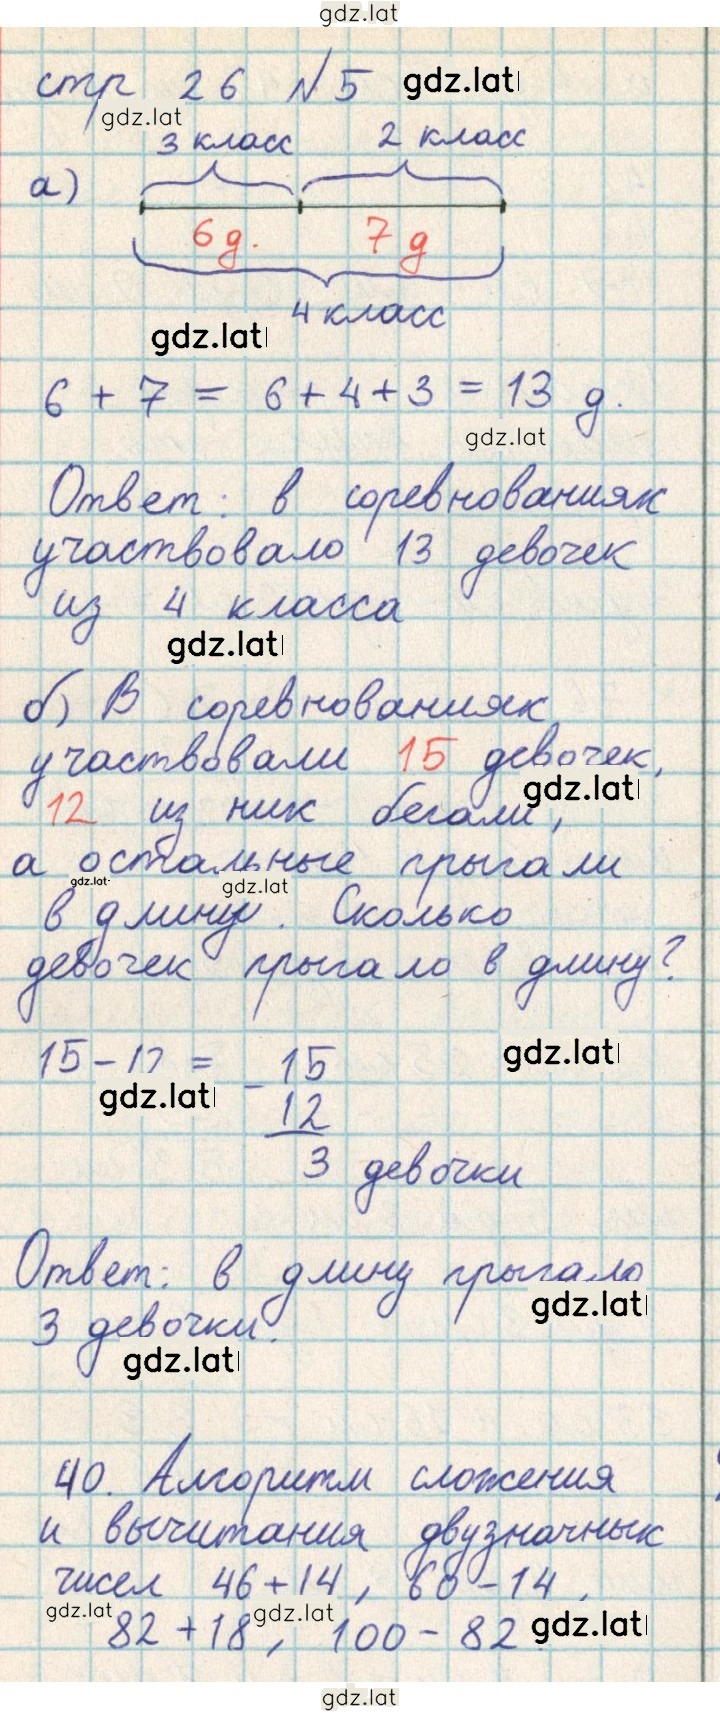 gdz.lat
стр 26 №5 gdz.lat
gdz.lat
3 класс 2 класс
а)
6 д. 7 д
4 класс
gdz.lat
6 + 7 = 6 + 4 + 3 = 13 д.
gdz.lat
Ответ: в соревнованиях
участвовало 13 девочек
из 4 класса
gdz.lat
б) В соревнованиях
участвовали 15 девочек,
gdz.lat
12 из них бегали,
а остальные прыгали
gdz.lat gdz.lat
в длину. Сколько
девочек прыгало в длину?
15 - 12 = - 15
gdz.lat
gdz.lat
12
3 девочки
Ответ: в длину прыгало
gdz.lat
3 девочки.
gdz.lat
40. Алгоритм сложения
и вычитания двузначных
чисел 46+14, 60-14,
gdz.lat gdz.lat gdz.lat
82+18, 100-82
gdz.lat